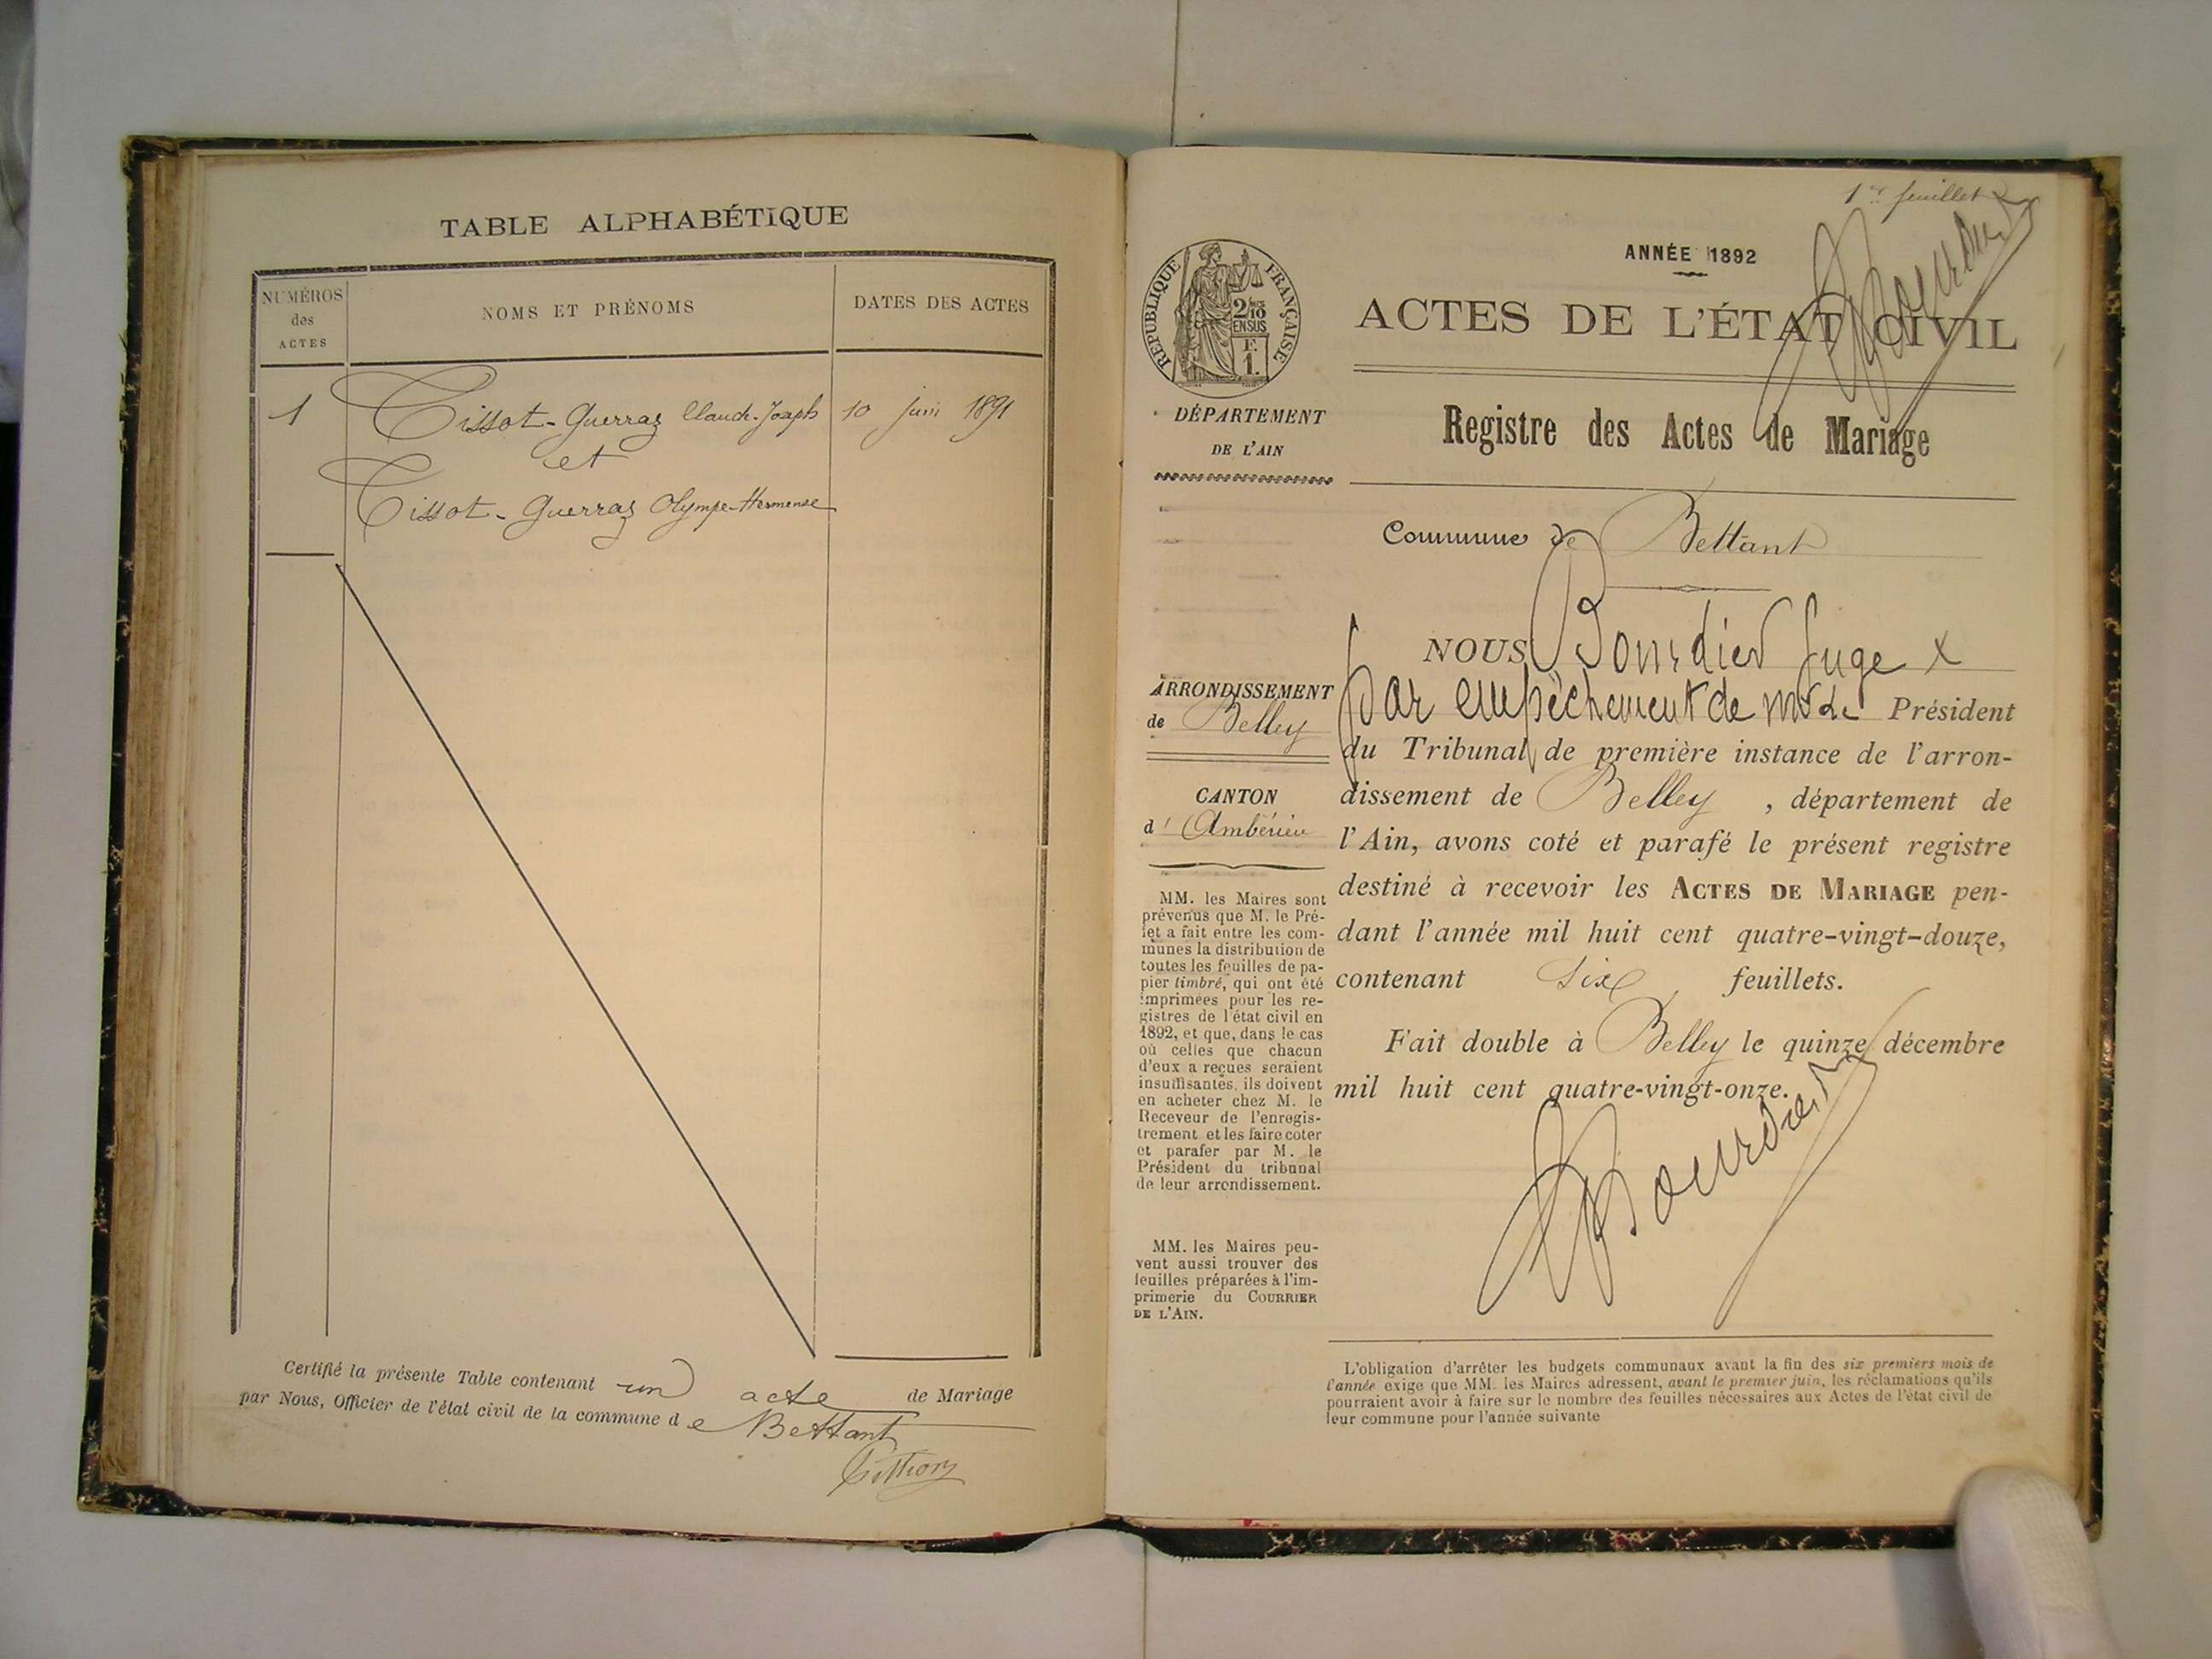 TABLE ALPHABÉTIQUE
NUMÉROS
des
ACTES
NOMS ET PRÉNOMS
DATES DES ACTES
1 Tissot-Guerraz Claude-Joseph 10 juin 1891
et
Tissot-Guerraz Olympe-Hermense
Certifié la présente Table contenant un acte de Mariage
par Nous, Officier de l'état civil de la commune de Bettant
1er feuillet
Bourdier
ANNÉE 1892
RÉPUBLIQUE FRANÇAISE
2/10
EN SUS
F.
1.
ACTES DE L'ÉTAT CIVIL
Registre des Actes de Mariage
Commune de Bettant
DÉPARTEMENT
DE L'AIN
ARRONDISSEMENT
de Belley
CANTON
d'Ambérieu
MM. les Maires sont
prévenus que M. le Pré-
fet a fait entre les com-
munes la distribution de
toutes les feuilles de pa-
pier timbré, qui ont été
imprimées pour les re-
gistres de l'état civil en
1892, et que, dans le cas
où celles que chacun
d'eux a reçues seraient
insuffisantes, ils doivent
en acheter chez M. le
Receveur de l'enregis-
trement et les faire coter
et parafer par M. le
Président du tribunal
de leur arrondissement.
MM. les Maires peu-
vent aussi trouver des
feuilles préparées à l'im-
primerie du COURRIER
DE L'AIN.
NOUS Bourdier Juge x
par empêchement de Mr le Président
du Tribunal de première instance de l'arron-
dissement de Belley, département de
l'Ain, avons coté et parafé le présent registre
destiné à recevoir les ACTES DE MARIAGE pen-
dant l'année mil huit cent quatre-vingt-douze,
contenant six feuillets.
Fait double à Belley le quinze décembre
mil huit cent quatre-vingt-onze.
Bourdier
L'obligation d'arrêter les budgets communaux avant la fin des six premiers mois de
l'année exige que MM. les Maires adressent, avant le premier juin, les réclamations qu'ils
pourraient avoir à faire sur le nombre des feuilles nécessaires aux Actes de l'état civil de
leur commune pour l'année suivante